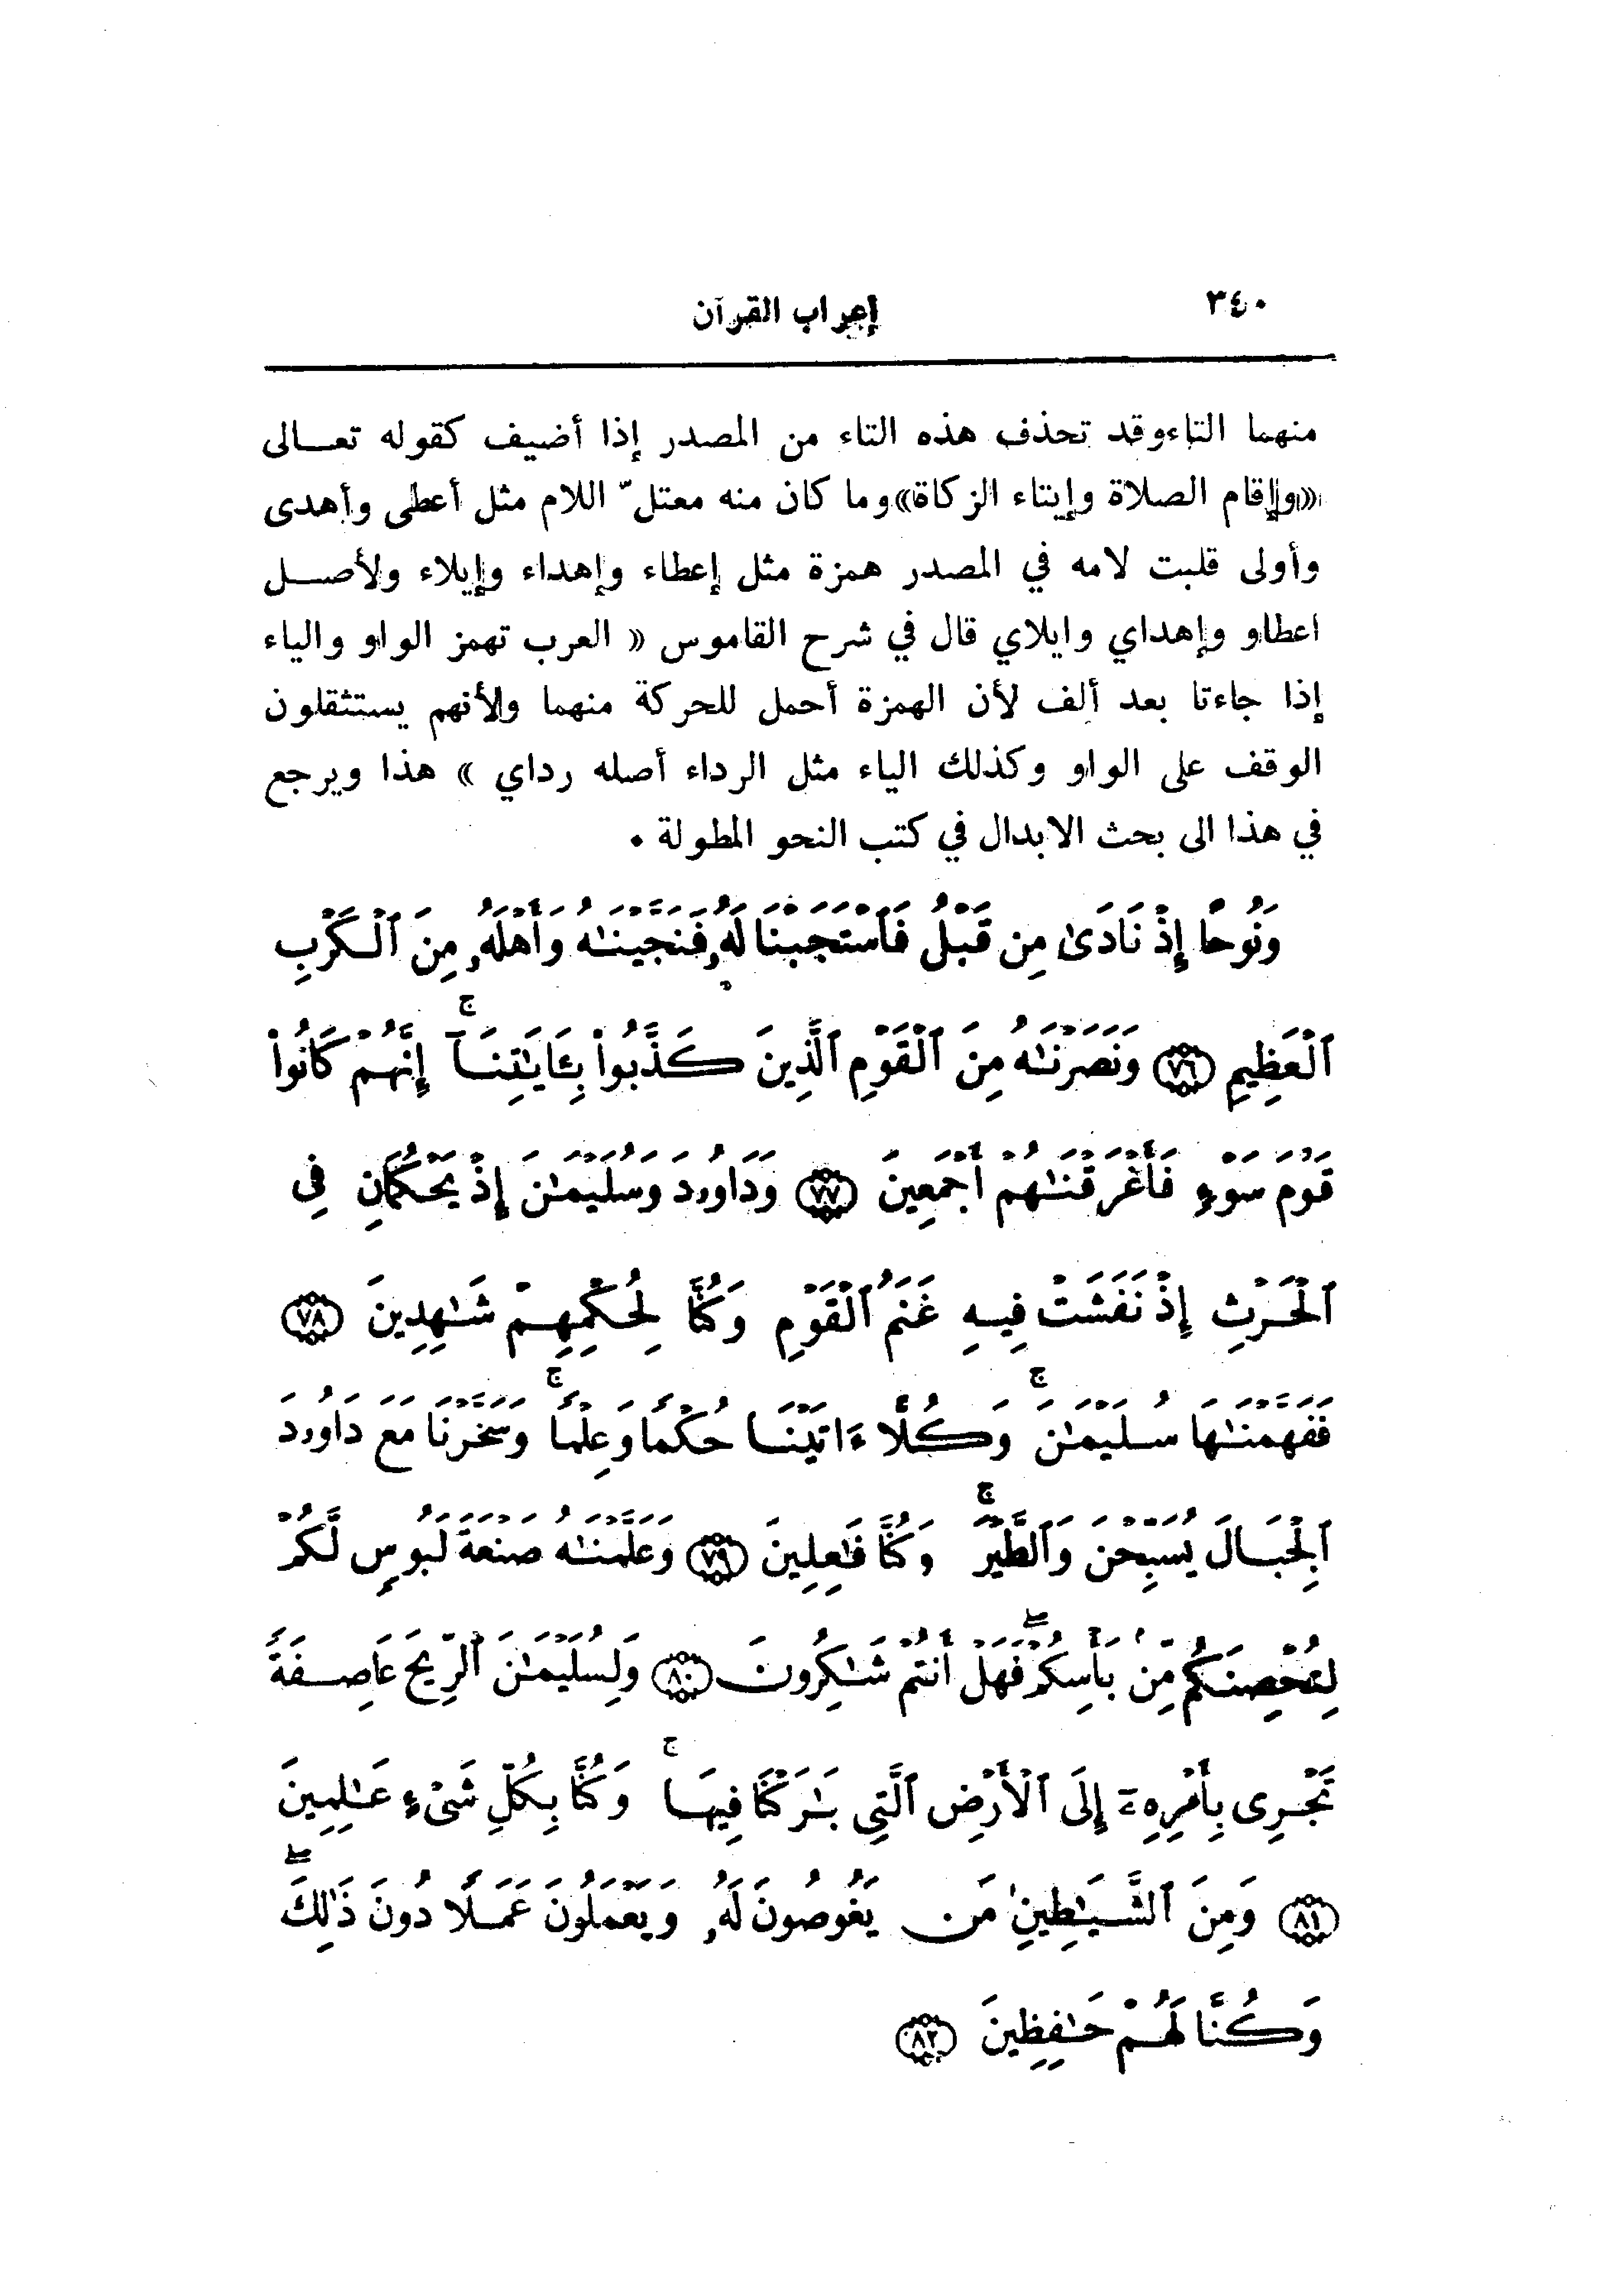 ٣٤٠
إعراب القرآن
منهما التاء وقد تحذف هذه التاء من المصدر إذا أضيف كقوله تعالى
«وإقام الصلاة وإيتاء الزكاة» وما كان منه معتلّ اللام مثل أعطى وأهدى
وأولى قلبت لامه في المصدر همزة مثل إعطاء وإهداء وإيلاء ولأصل
اعطاو وإهداي وايلاي قال في شرح القاموس « العرب تهمز الواو والياء
إذا جاءتا بعد ألف لأن الهمزة أحمل للحركة منهما ولأنهم يستثقلون
الوقف على الواو وكذلك الياء مثل الرداء أصله رداي » هذا ويرجع
في هذا الى بحث الابدال في كتب النحو المطولة .
وَنُوحًا إِذْ نَادَىٰ مِن قَبْلُ فَٱسْتَجَبْنَا لَهُۥ فَنَجَّيْنَٰهُ وَأَهْلَهُۥ مِنَ ٱلْكَرْبِ
ٱلْعَظِيمِ ﴿٧٦﴾ وَنَصَرْنَٰهُ مِنَ ٱلْقَوْمِ ٱلَّذِينَ كَذَّبُوا۟ بِـَٔايَٰتِنَآ ۚ إِنَّهُمْ كَانُوا۟
قَوْمَ سَوْءٍ فَأَغْرَقْنَٰهُمْ أَجْمَعِينَ ﴿٧٧﴾ وَدَاوُۥدَ وَسُلَيْمَٰنَ إِذْ يَحْكُمَانِ فِى
ٱلْحَرْثِ إِذْ نَفَشَتْ فِيهِ غَنَمُ ٱلْقَوْمِ وَكُنَّا لِحُكْمِهِمْ شَٰهِدِينَ ﴿٧٨﴾
فَفَهَّمْنَٰهَا سُلَيْمَٰنَ ۚ وَكُلًّا ءَاتَيْنَا حُكْمًا وَعِلْمًا ۚ وَسَخَّرْنَا مَعَ دَاوُۥدَ
ٱلْجِبَالَ يُسَبِّحْنَ وَٱلطَّيْرَ ۚ وَكُنَّا فَٰعِلِينَ ﴿٧٩﴾ وَعَلَّمْنَٰهُ صَنْعَةَ لَبُوسٍ لَّكُمْ
لِتُحْصِنَكُم مِّنۢ بَأْسِكُمْ ۖ فَهَلْ أَنتُمْ شَٰكِرُونَ ﴿٨٠﴾ وَلِسُلَيْمَٰنَ ٱلرِّيحَ عَاصِفَةً
تَجْرِى بِأَمْرِهِۦٓ إِلَى ٱلْأَرْضِ ٱلَّتِى بَٰرَكْنَا فِيهَا ۚ وَكُنَّا بِكُلِّ شَىْءٍ عَٰلِمِينَ
﴿٨١﴾ وَمِنَ ٱلشَّيَٰطِينِ مَن يَغُوصُونَ لَهُۥ وَيَعْمَلُونَ عَمَلًا دُونَ ذَٰلِكَ ۖ
وَكُنَّا لَهُمْ حَٰفِظِينَ ﴿٨٢﴾